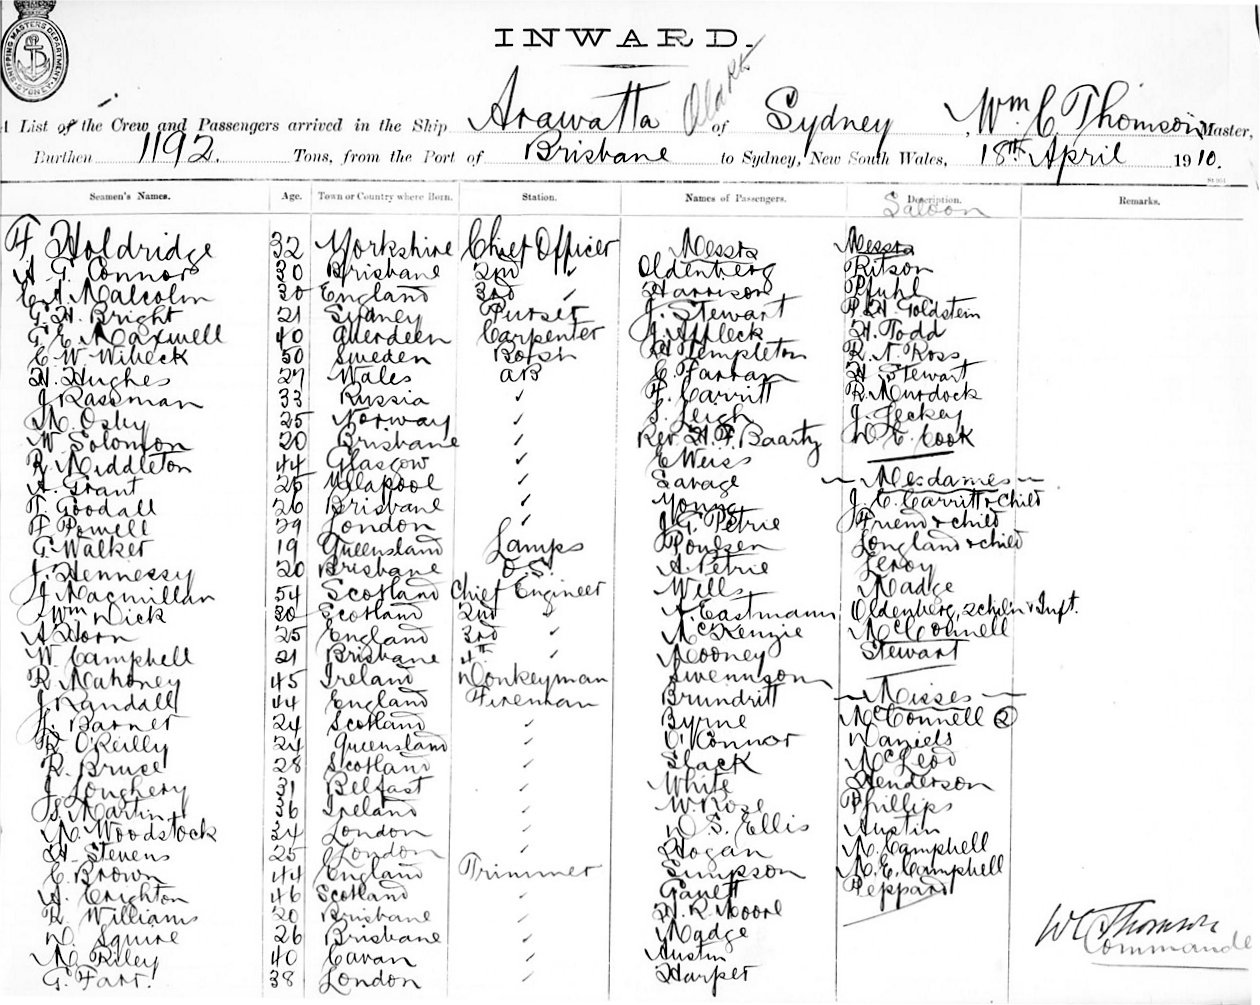 SHIPPING MASTERS DEPARTMENT SYDNEY
INWARD.
A List of the Crew and Passengers arrived in the Ship Arawatta of Sydney, Wm. C. Thomson, Master,
Burthen 1192. Tons, from the Port of Brisbane to Sydney, New South Wales, 18th April 1910.
Seamen's Names. Age. Town or Country where Born. Station. Names of Passengers. Description. Remarks.
Saloon
F Holdridge 32 Yorkshire Chief Officer Messrs Messrs
A. G. Connor 30 Brisbane 2nd " Oldenberg Ritson
C. A. Malcolm 30 England 3rd ✓ Harrison Pfuhl
G. H. Bright 21 Sydney Purser J. Stewart P. H. Goldstein
G. E. Maxwell 40 Aberdeen Carpenter J. Affleck H. Todd
C. W. Wibeck 50 Sweden Bosn Templeton R. N. Ross
H. Hughes 27 Wales AB C. Farran H. Stewart
J Rassman 33 Russia ✓ F. Carritt R. Murdock
M. Osly 25 Norway ✓ S. Leigh J. Leckey
W. Solomon 20 Brisbane ✓ Rev. H. F. Baarty W. E. Cook
R. Middleton 44 Glasgow ✓ E Weiss
A. Grant 25 Ullapool ✓ Savage Mesdames
T. Goodall 26 Brisbane ✓ Young J. C. Carritt & Child
F Powell 29 London ✓ J. G. Petrie Friend & child
G. Walker 19 Queensland Lamps Poulsen Longland & child
J. Hennessy 20 Brisbane O.S. A. Petrie Leroy
J. Macmillan 54 Scotland Chief Engineer Wills Madge
Wm Dick 30 Scotland 2nd " A. Eastmann Oldenberg, 2 child'n & Inft.
A Horn 25 England 3rd ✓ McKenzie McConnell
W. Campbell 21 Brisbane 4th ✓ Mooney Stewart
R. Mahoney 45 Ireland Donkeyman Swennson
J. Randall 44 England Fireman Brundritt Misses
J. Barnet 24 Scotland ✓ Byrne McConnell 2
R. O'Reilly 24 Queensland ✓ O'Connor Daniels
R. Bruce 28 Scotland ✓ Slack McLeod
J. Loughery 31 Belfast ✓ White Henderson
S. Martin 36 Ireland ✓ W. Rose Phillips
N. Woodstock 34 London ✓ D. S. Ellis Austin
H. Stevens 25 London ✓ Hogan M. Campbell
C. Brown 44 England Trimmer Simpson M. E. Campbell
A. Crighton 46 Scotland ✓ Garett Peppard
R. Williams 20 Brisbane ✓ H. R. Moore
D. Squire 26 Brisbane ✓ Madge
M. Riley 40 Cavan ✓ Austin
G. Farr. 38 London ✓ Harper
W C Thomson
Commander